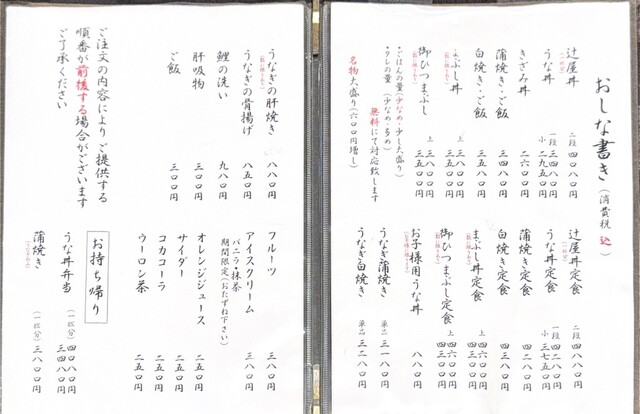 おしな書き（消費税 込）
辻屋丼 二段 四〇八〇円
うな丼 一段 三四八〇円
小 二九五〇円
きざみ丼 二六〇〇円
蒲焼き・ご飯 三五八〇円
白焼き・ご飯 三五八〇円
まぶし丼 三三八〇円
上 三八八〇円
御ひつまぶし 三五〇〇円
上 三八〇〇円
・ごはんの量（少なめ・少し大盛り）
・タレの量（少なめ・多め）
無料にて対応致します
名物大盛り（六〇〇円増し）
辻屋丼定食 二段 四八八〇円
うな丼定食 一段 四二八〇円
小 三七五〇円
蒲焼き定食 四三八〇円
白焼き定食 四三八〇円
まぶし丼定食
上 四六〇〇円
御ひつまぶし定食
上 四六〇〇円
お子様用うな丼 八八〇円
うなぎ蒲焼き 単品 三一八〇円
うなぎ白焼き 単品 三二八〇円
うなぎの肝焼き 八八〇円
うなぎの骨揚げ 八五〇円
鯉の洗い 九八〇円
肝吸物 三〇〇円
ご飯 三〇〇円
ご注文の内容により ご提供する
順番が前後する場合がございます
ご了承ください
フルーツ 三八〇円
アイスクリーム 三八〇円
バニラ・抹茶
期間限定（おたずね下さい）
オレンジジュース 二五〇円
サイダー 二五〇円
コカコーラ 二五〇円
ウーロン茶 二五〇円
お持ち帰り
うな丼弁当 四〇八〇円
（一匹分） 三四八〇円
蒲焼き
（一匹分） 三一八〇円